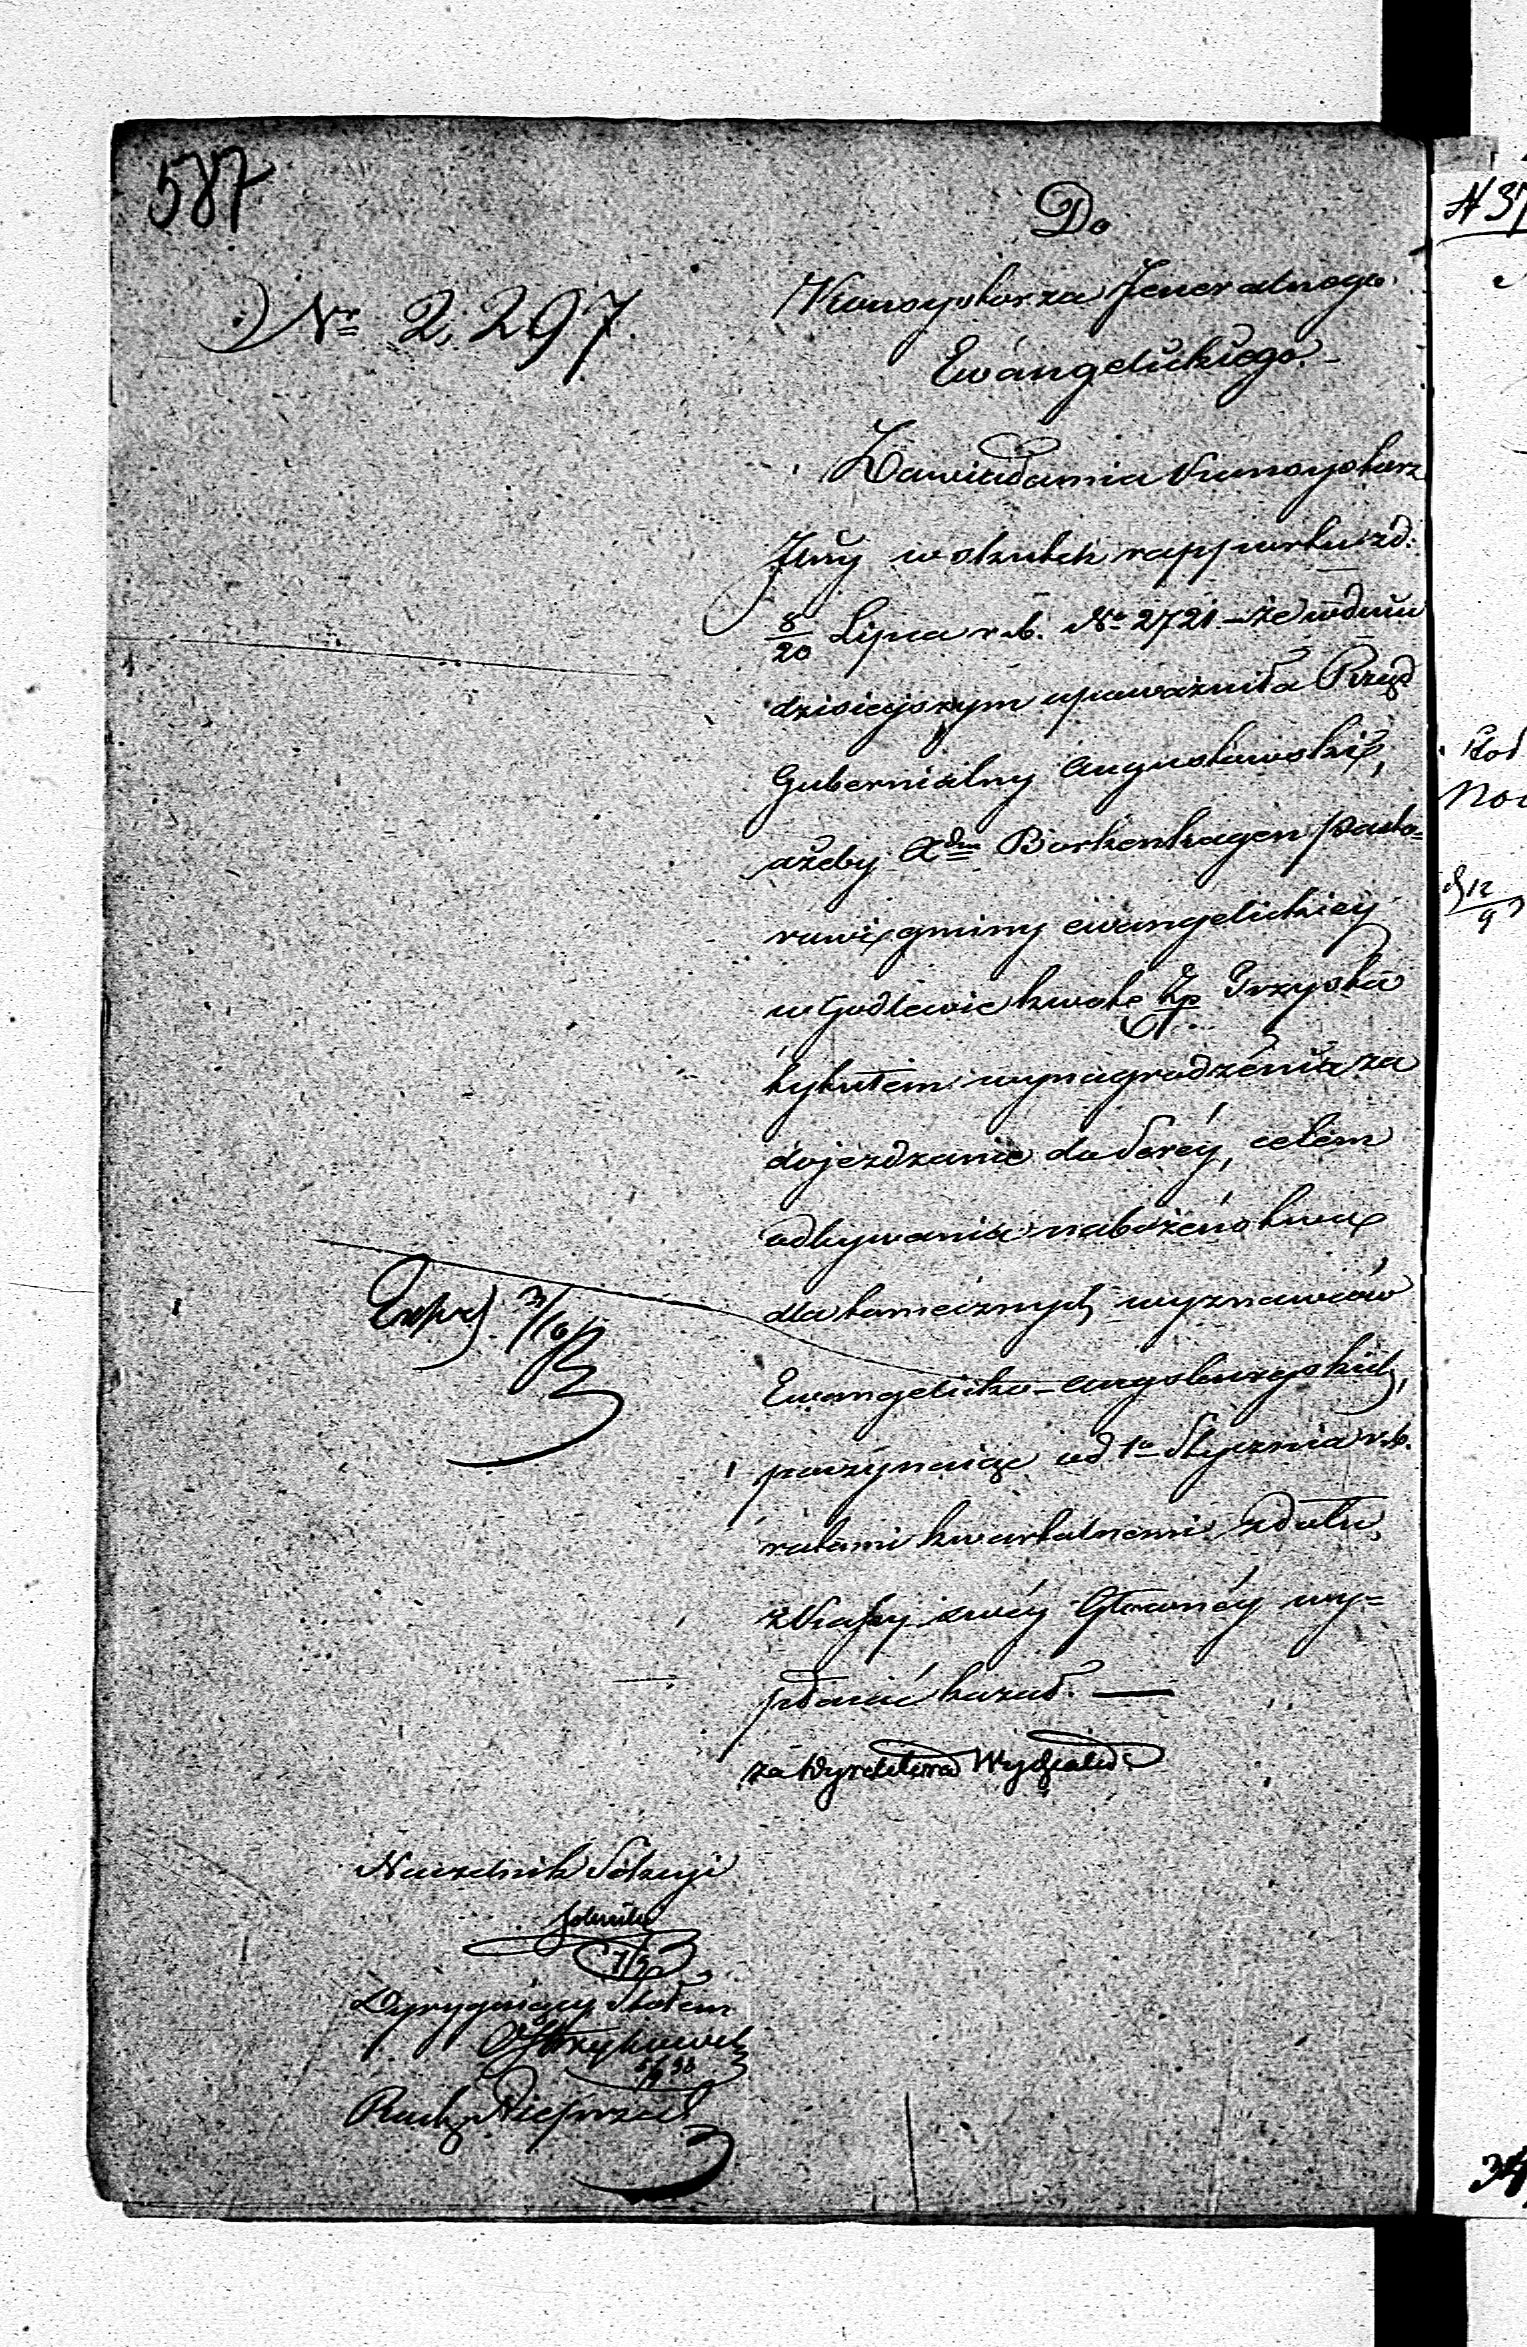 587
Nr 2,297
Do
Konsystorza Jeneralnego
Ewangelickiego
Zawiadamia Konsystorz
Jlny w skutek rapportu z d:
8/20 Lipca r. b. No 2721 – że w dniu
dzisiejszym upoważniła Rząd
Gubernialny Augustowski,
ażeby Xdzu Borkenhagen Pasto=
rowi gminy ewangelickiej
w Godlewie kwotę Zp. Trzysta
tytułem wynagrodzenia za
dojeżdżanie do Serey, celem
odbywania nabożeństwa
dla tamecznych wyznawców
Ewangelicko-Augsburgskich,
poczynając od 1o Stycznia r. b.
ratami kwartalnemi z dołu,
z Kassy swéj Głównéj wy=
płacać kazał. —
za Dyrektora Wydziału
Exped. 3/10
Naczelnik Sekcyi
7/9
Dyrygujący Stołem